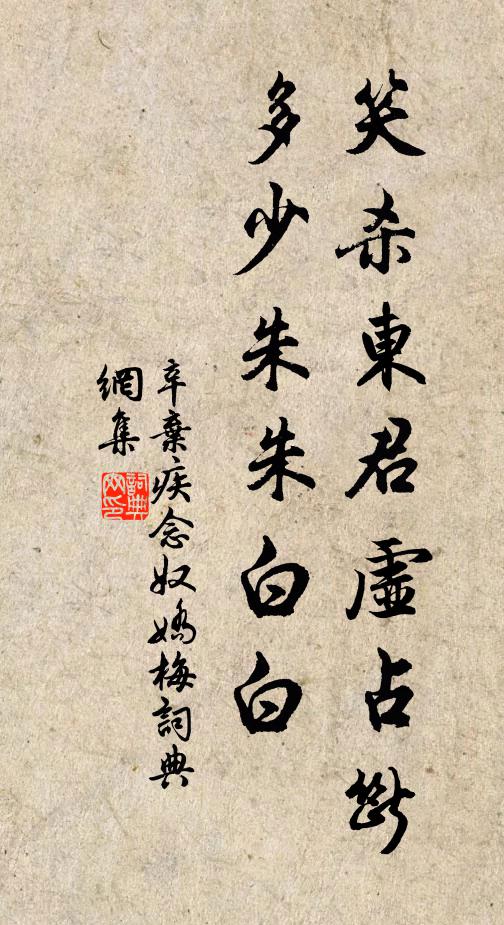 笑杀東君虛占斷
多少朱朱白白
辛棄疾念奴嬌梅詞典
網集
詞典
网印